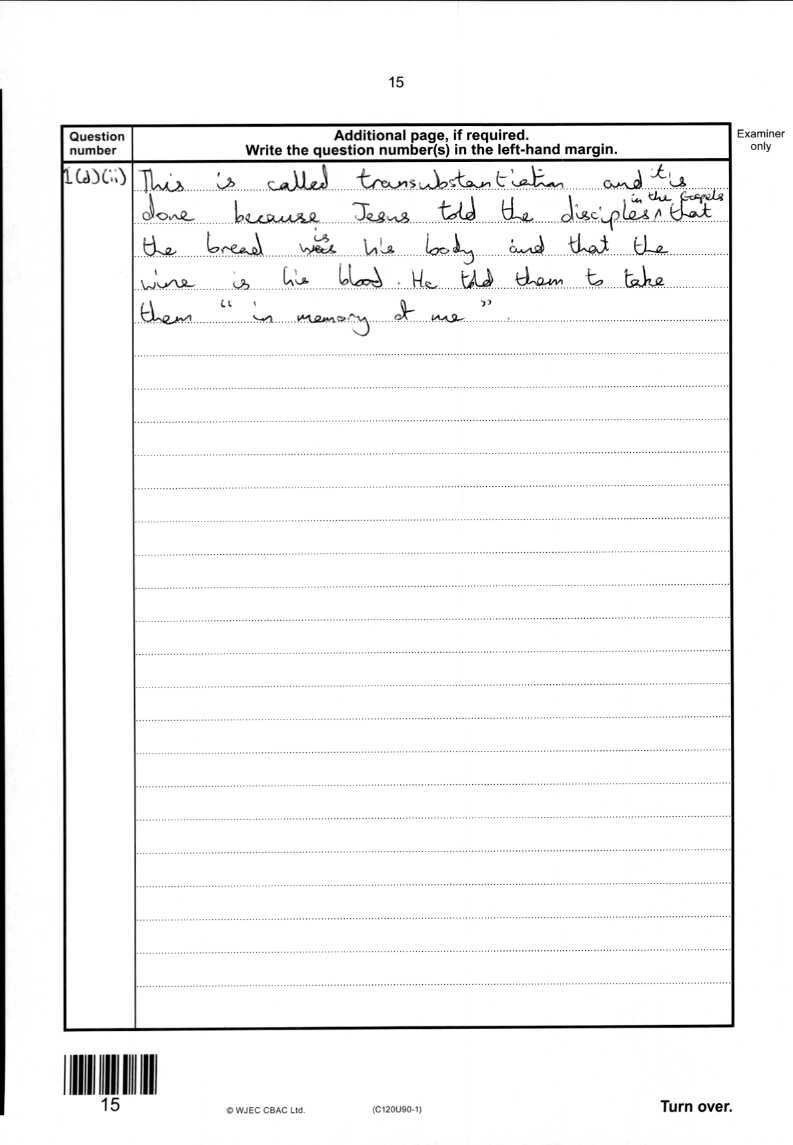 15
Question number
Additional page, if required.
Write the question number(s) in the left-hand margin.
Examiner only
1(d)(ii) This is called transubstantiation and it is
done because Jesus told the disciples ^ in the Gospels that
the bread was is his body and that the
wine is his blood. He told them to take
them "in memory of me".
15
© WJEC CBAC Ltd.
(C120U90-1)
Turn over.